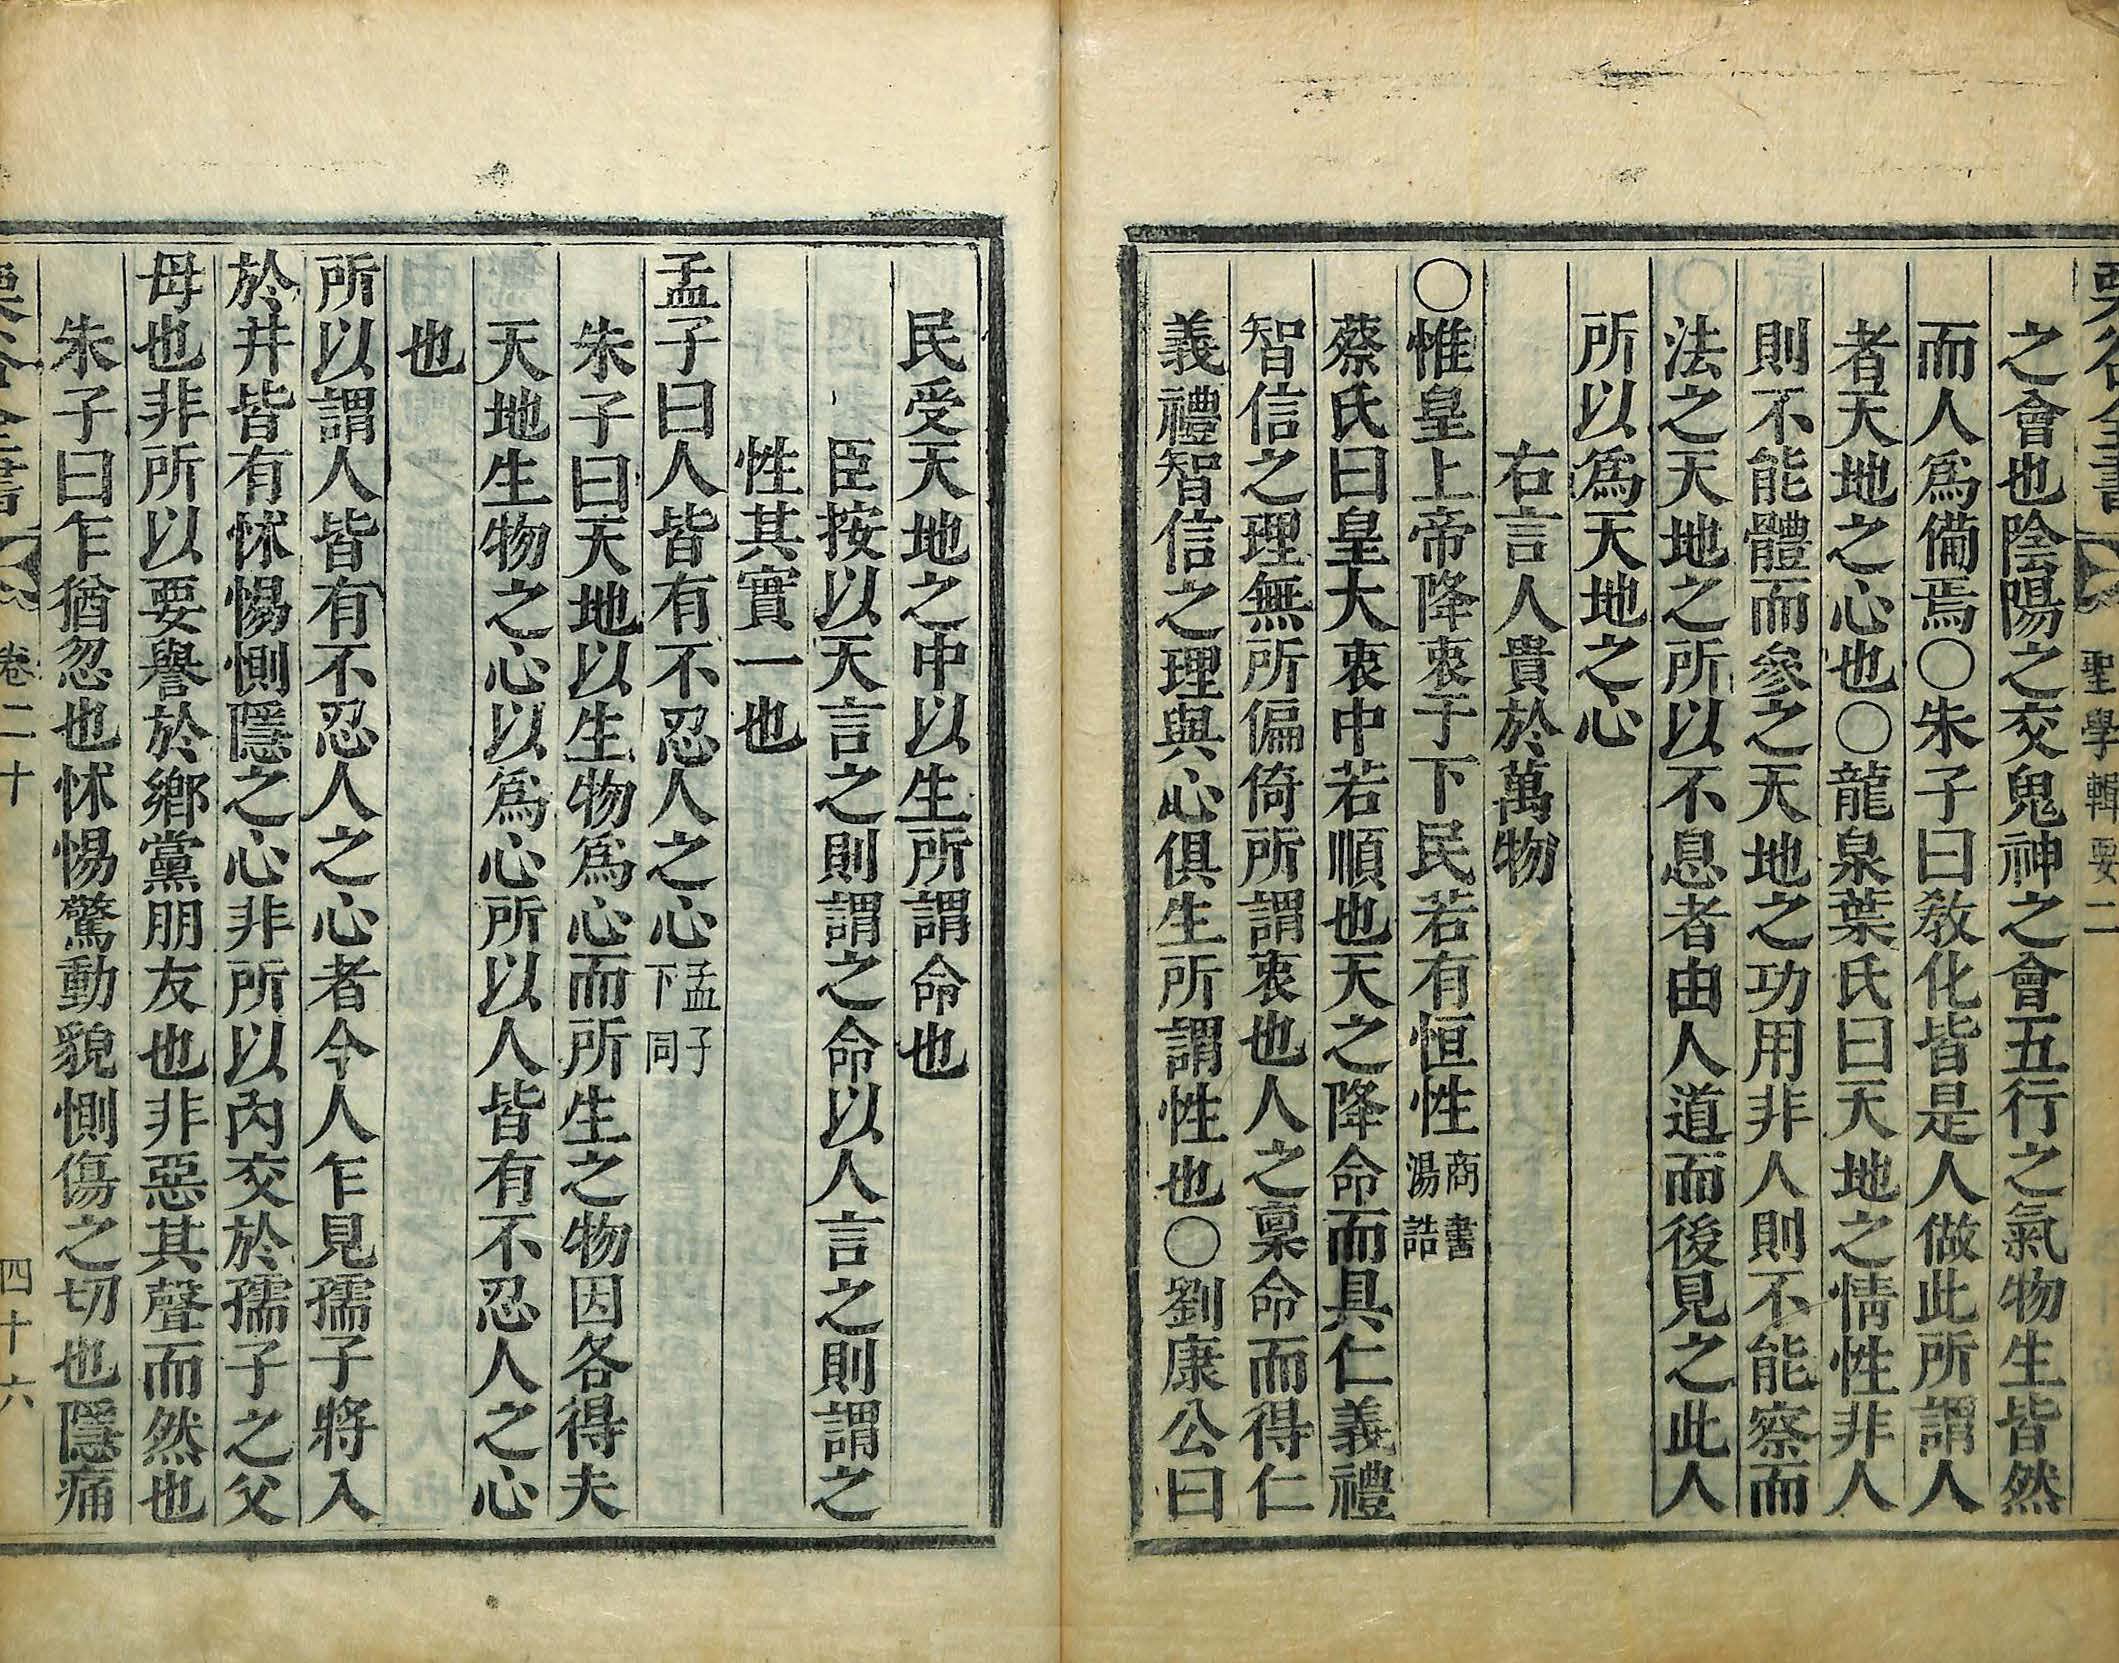 栗谷全書 聖學輯要二
之會也陰陽之交鬼神之會五行之氣物生皆然
而人爲備焉○朱子曰敎化皆是人做此所謂人
者天地之心也○龍泉葉氏曰天地之情性非人
則不能體而參之天地之功用非人則不能察而
法之天地之所以不息者由人道而後見之此人
所以爲天地之心
右言人貴於萬物
○惟皇上帝降衷于下民若有恒性商書湯誥
蔡氏曰皇大衷中若順也天之降命而具仁義禮
智信之理無所偏倚所謂衷也人之稟命而得仁
義禮智信之理與心俱生所謂性也○劉康公曰
民受天地之中以生所謂命也
臣按以天言之則謂之命以人言之則謂之
性其實一也
孟子曰人皆有不忍人之心孟子下同
朱子曰天地以生物爲心而所生之物因各得夫
天地生物之心以爲心所以人皆有不忍人之心
也
所以謂人皆有不忍人之心者今人乍見孺子將入
於井皆有怵惕惻隱之心非所以內交於孺子之父
母也非所以要譽於鄉黨朋友也非惡其聲而然也
朱子曰乍猶忽也怵惕驚動貌惻傷之切也隱痛
栗谷全書 卷二十 四十六